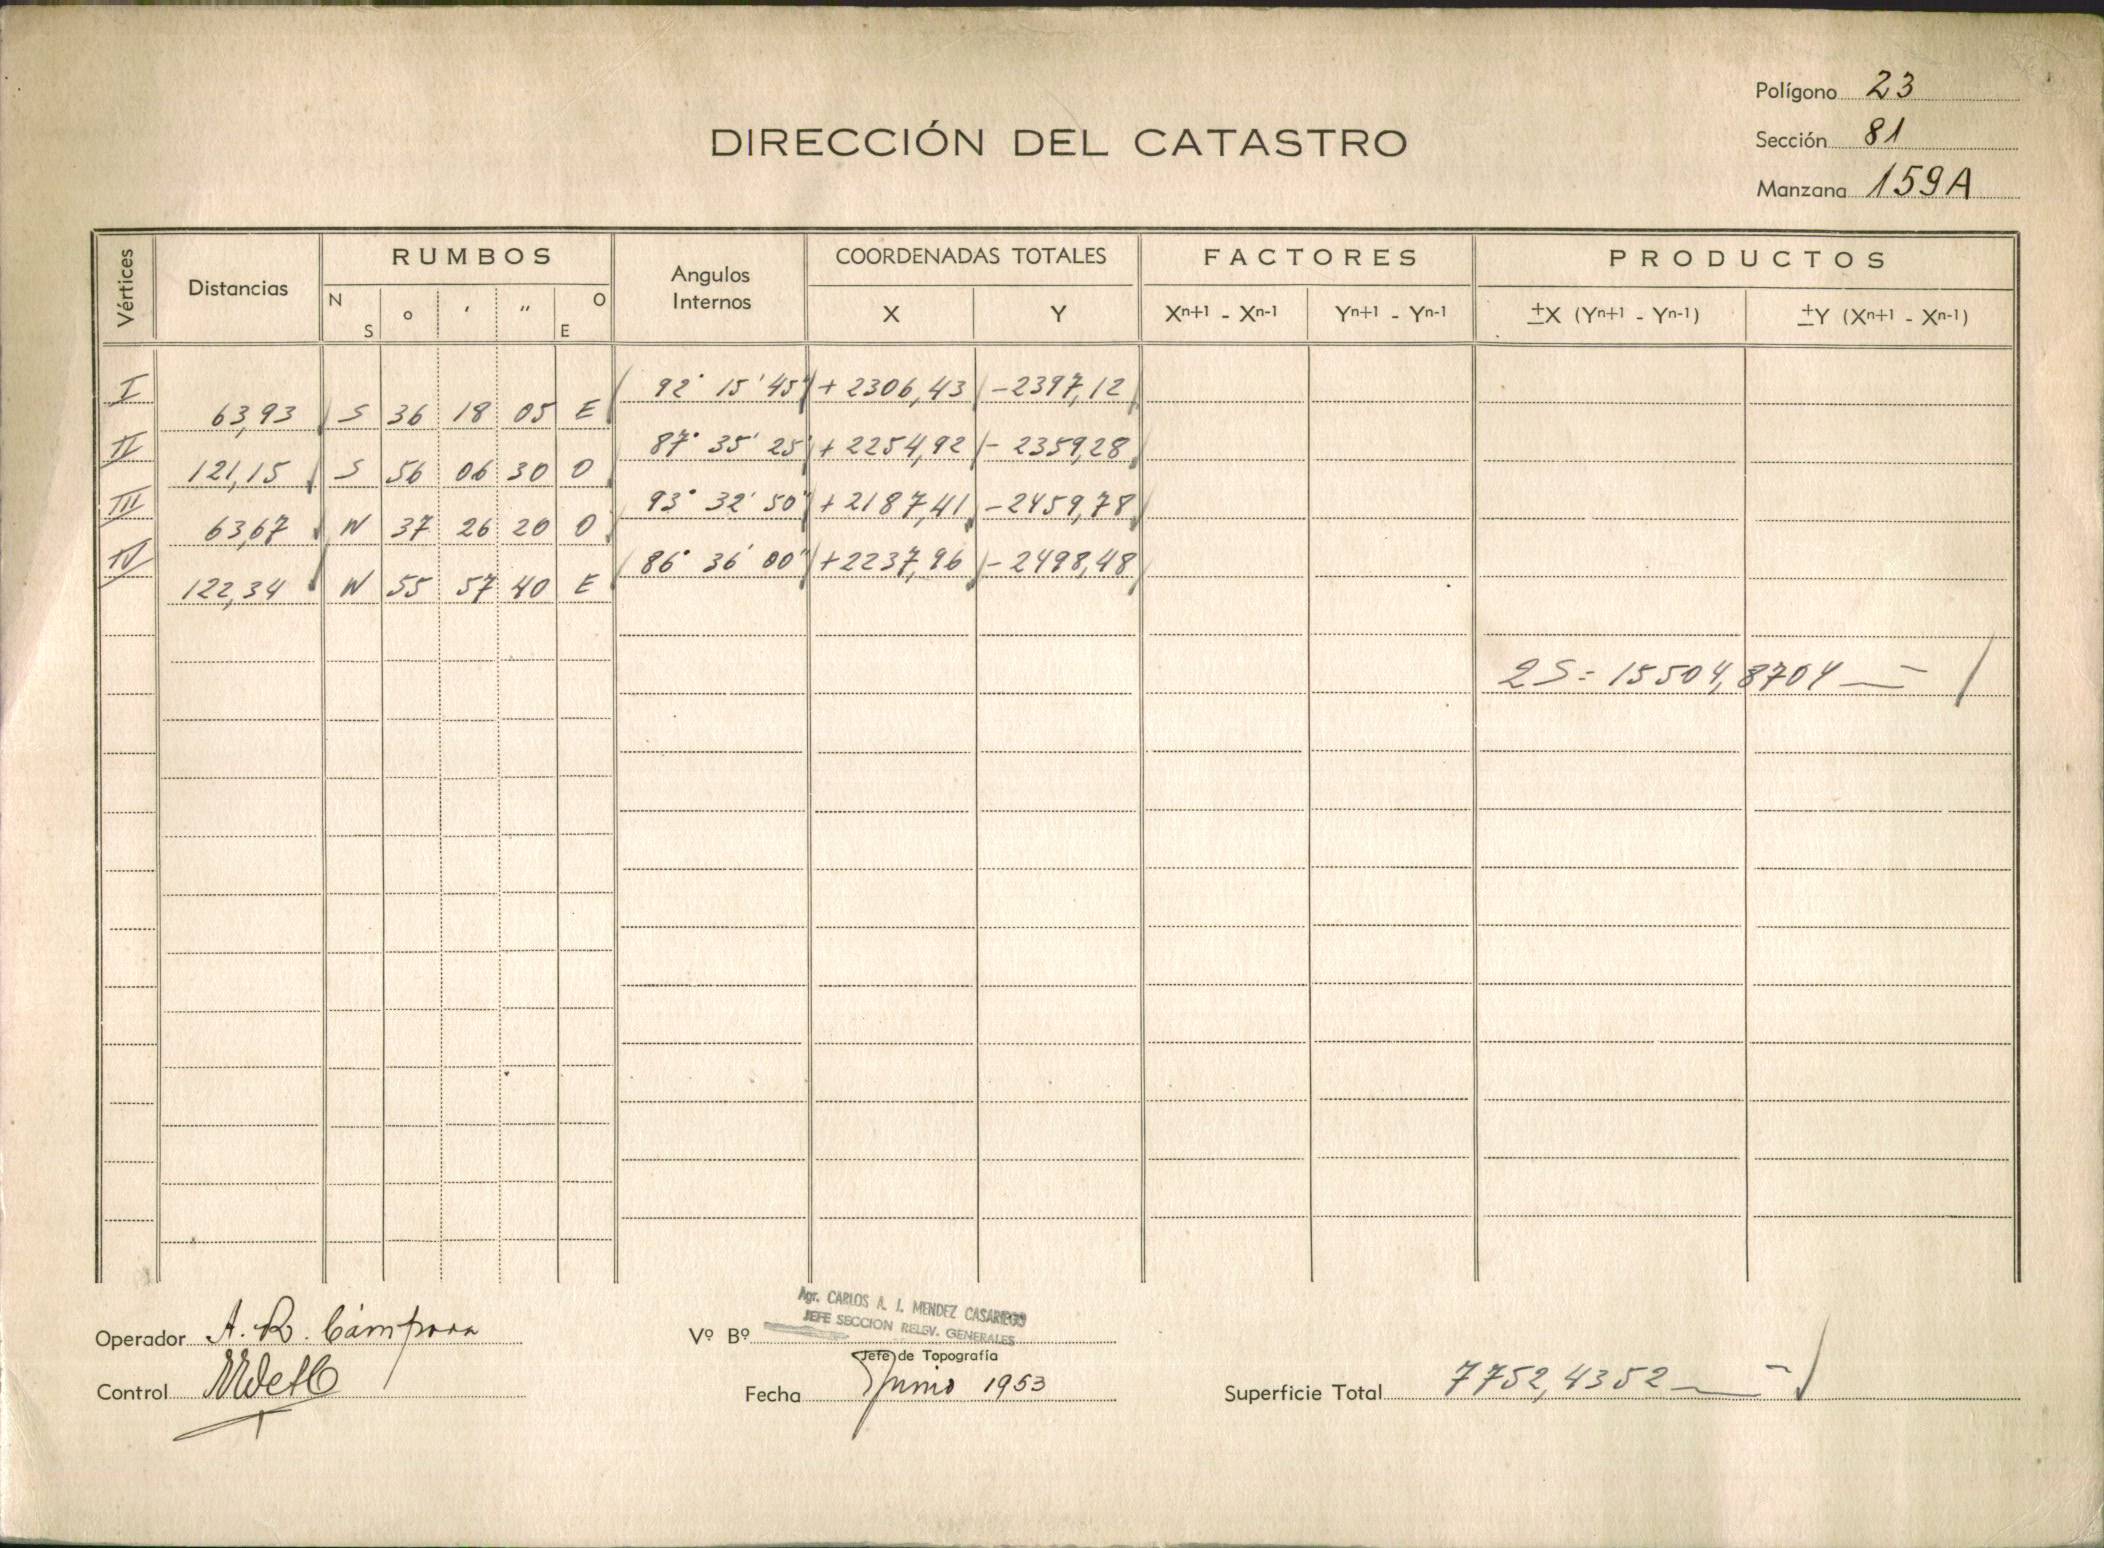 Polígono 23
DIRECCIÓN DEL CATASTRO
Sección 81
Manzana 159A
Vértices Distancias RUMBOS Angulos Internos COORDENADAS TOTALES FACTORES PRODUCTOS
N S ° ' " O E X Y Xn+1 - Xn-1 Yn+1 - Yn-1 ±X (Yn+1 - Yn-1) ±Y (Xn+1 - Xn-1)
I 92° 15' 45" + 2306,43 - 2397,12
63,93 S 36 18 05 E
II 87° 35' 25" + 2254,92 - 2359,28
121,15 S 56 06 30 O
III 93° 32' 50" + 2187,41 - 2459,78
63,67 N 37 26 20 O
IV 86° 36' 00" + 2237,96 - 2498,48
122,34 N 55 57 40 E
2S = 15504,8704
Agr. CARLOS A. J. MENDEZ CASARIEGO
JEFE SECCION RELEV. GENERALES
Operador A. R. Cámpora Vº Bº
Jefe de Topografía
Control Fecha Junio 1953 Superficie Total 7752,4352